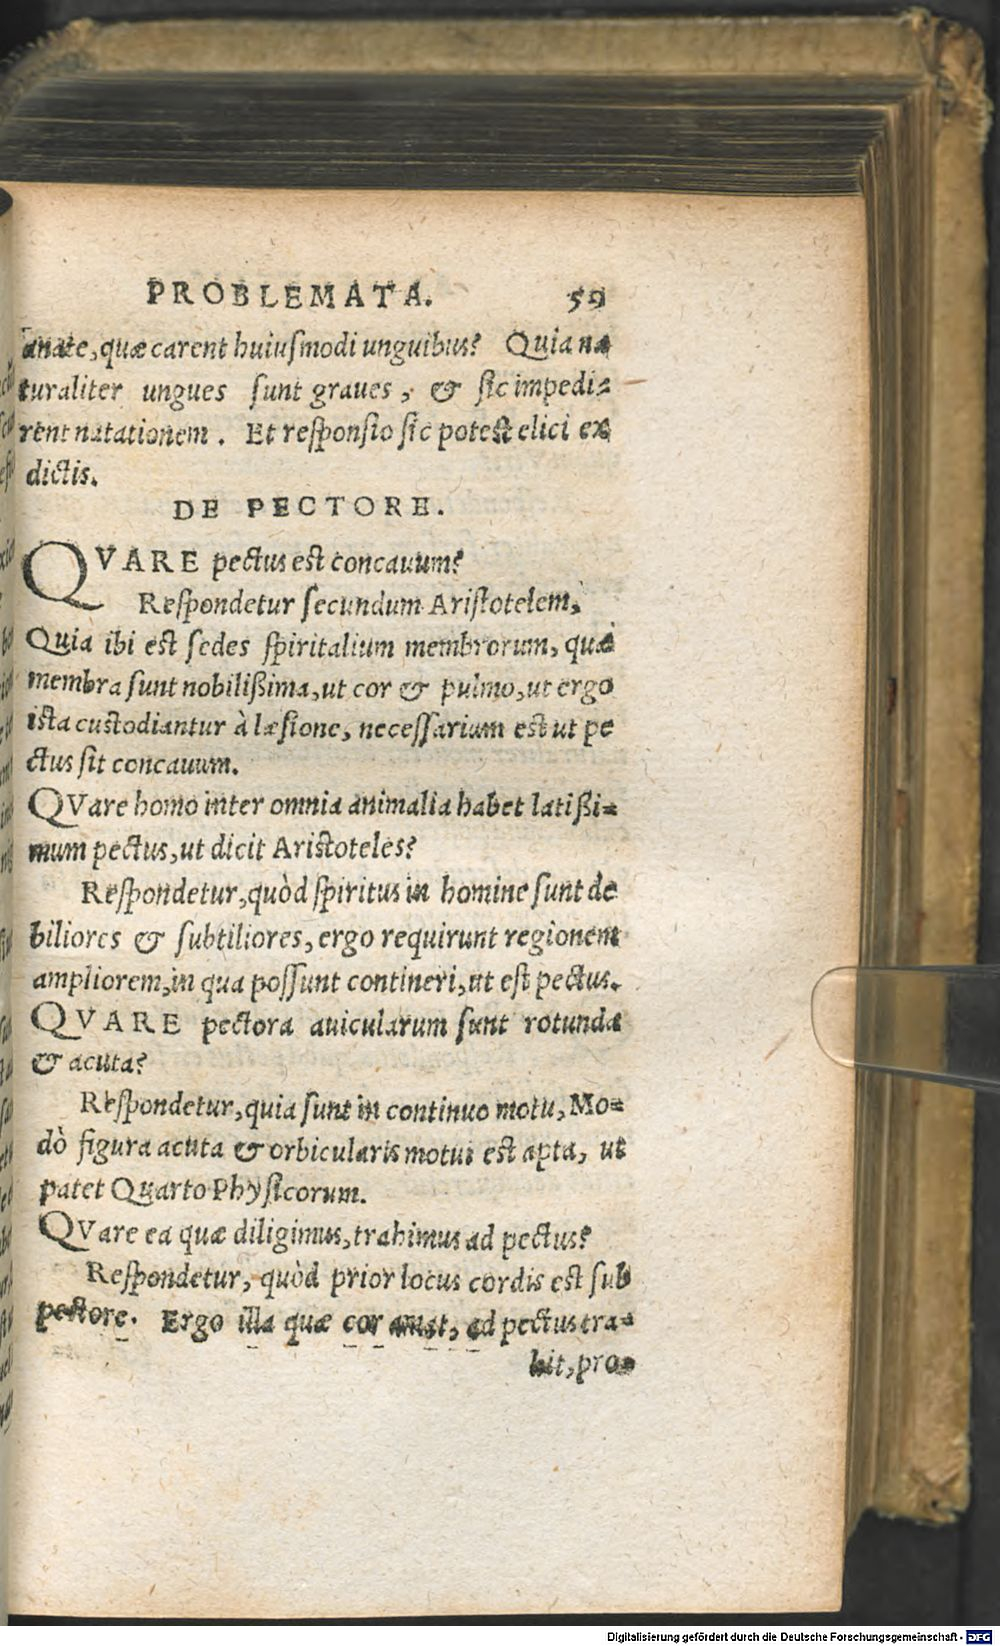 PROBLEMATA. 59
anate, quæ carent huiuſmodi unguibus? Quia na
turaliter ungues ſunt graues, & ſic impedi=
rent natationem. Et reſponſio ſic poteſt elici ex
dictis.
DE PECTORE.
QVARE pectus eſt concauum?
Reſpondetur ſecundum Ariſtotelem,
Quia ibi eſt ſedes ſpiritalium membrorum, quæ
membra ſunt nobilißima, ut cor & pulmo, ut ergo
iſta cuſtodiantur à læſione, neceſſarium eſt ut pe
ctus ſit concauum.
QVare homo inter omnia animalia habet latißi=
mum pectus, ut dicit Ariſtoteles?
Reſpondetur, quòd ſpiritus in homine ſunt de
biliores & ſubtiliores, ergo requirunt regionem
ampliorem, in qua poſſunt contineri, ut eſt pectus.
QVARE pectora auicularum ſunt rotunda
& acuta?
Reſpondetur, quia ſunt in continuo motu, Mo=
dò figura acuta & orbicularis motui eſt apta, ut
patet Quarto Phyſicorum.
QVare ea quæ diligimus, trahimus ad pectus?
Reſpondetur, quòd prior locus cordis eſt ſub
pectore. Ergo illa quæ cor amat, ad pectus tra=
hit, pro=
Digitalisierung gefördert durch die Deutsche Forschungsgemeinschaft - DFG